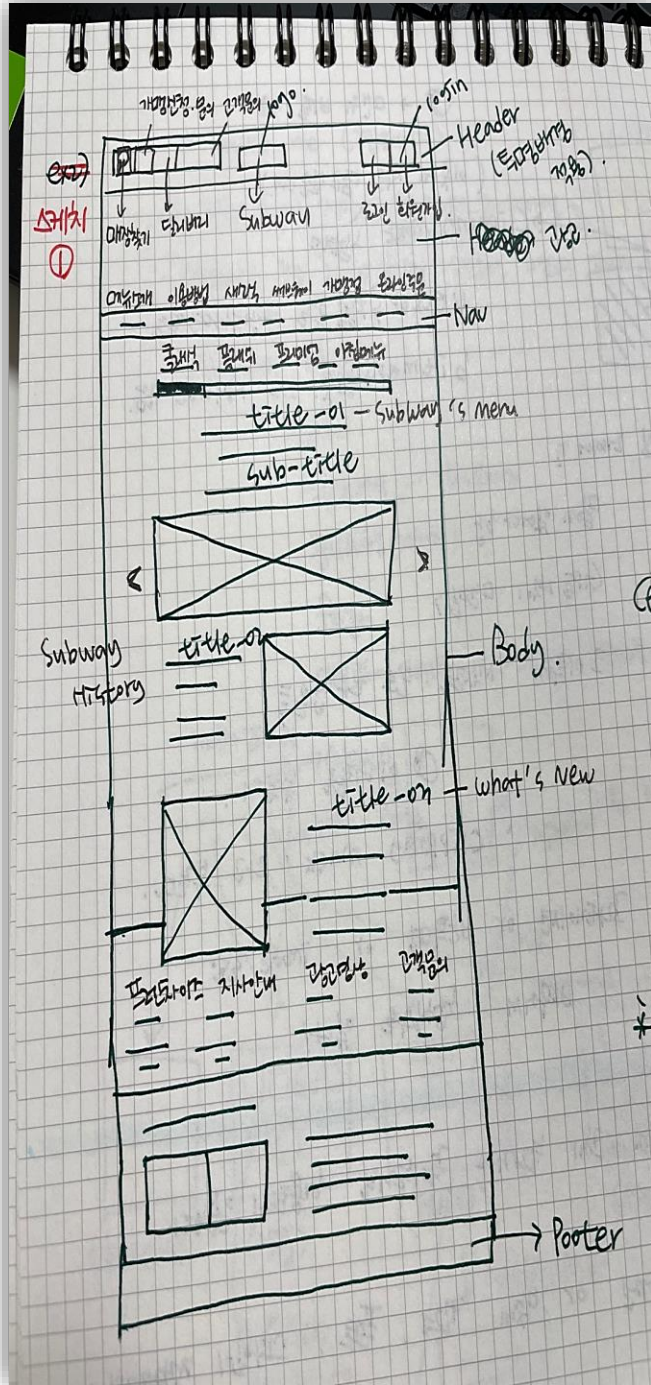 가맹신청·문의 고객문의 logo.
login
Header
(투명배경
스케치
①
매장찾기 딜리버리 Subway 로그인 회원가입.
메뉴소개 이용방법 새소식 써브웨이 가맹점 온라인주문
Nav
클래식 프레쉬 프리미엄 아침메뉴
title-01 - Subway's menu
sub-title
< >
Subway
History
title-02
Body.
title-04 what's New
프랜차이즈 지사안내 광고영상 고객문의
Footer